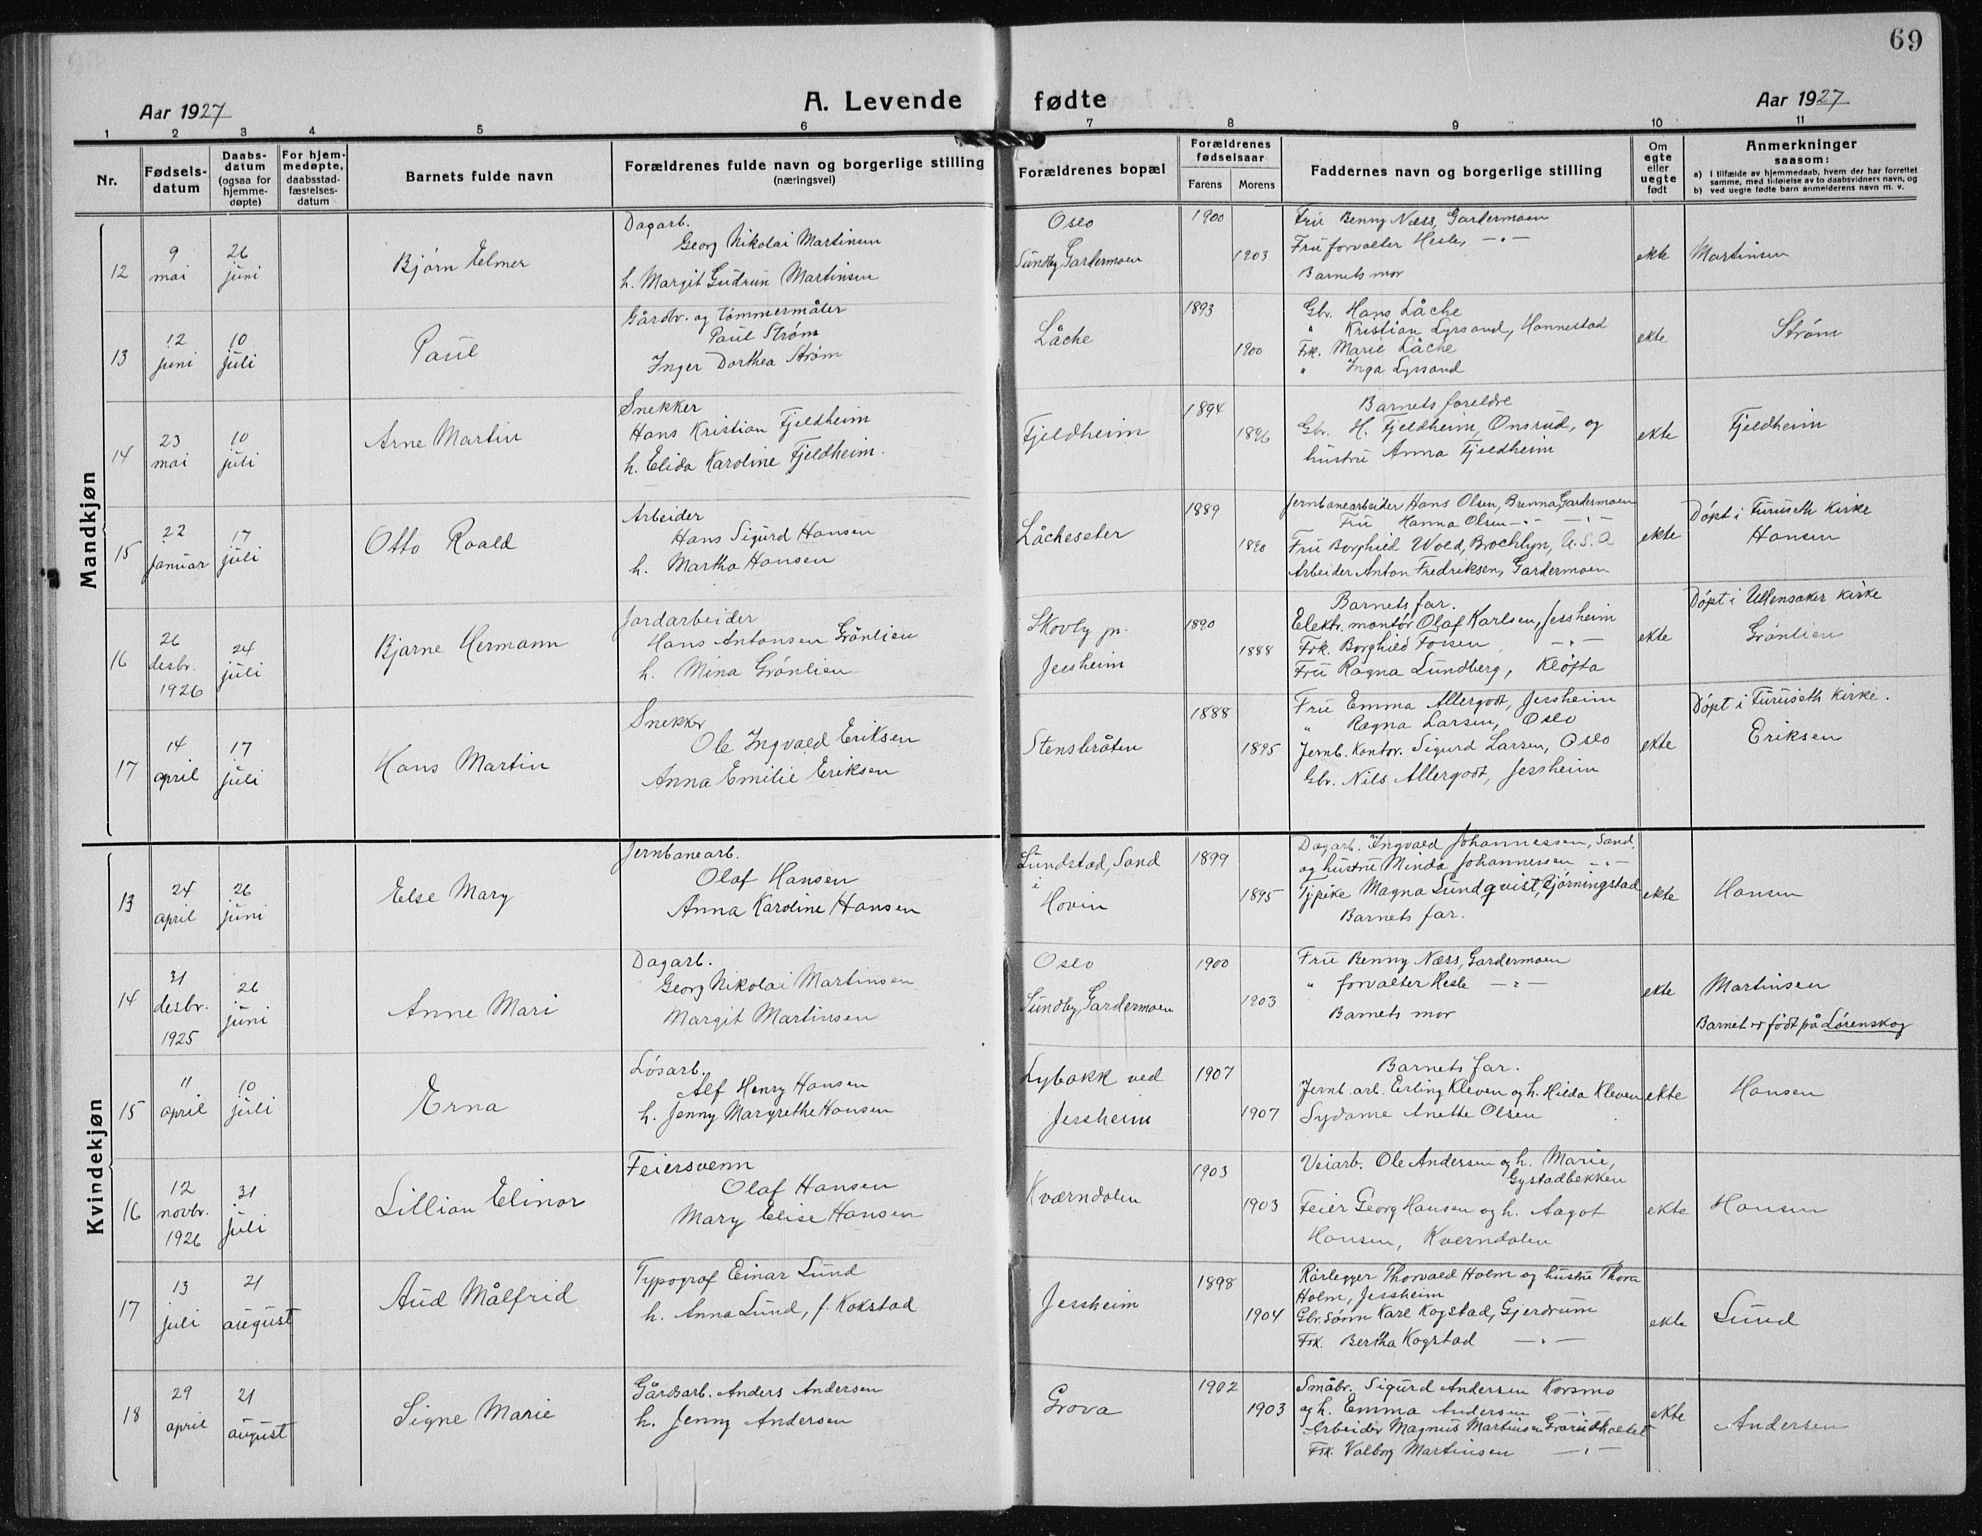 69
Aar 1927
A. Levende fødte
Aar 1927
1 2 3 4 5 6 7 8 9 10 11
Nr.
Fødsels-
datum
Daabs-
datum
(ogsaa for
hjemme-
døpte)
For hjem-
medøpte,
daabsstad-
fæstelses-
datum
Barnets fulde navn
Forældrenes fulde navn og borgerlige stilling
(næringsvei)
Forældrenes bopæl
Forældrenes
fødselsaar
Farens Morens
Faddernes navn og borgerlige stilling
Om
egte
eller
uegte
født
Anmerkninger
saasom:
a) I tilfælde av hjemmedaab, hvem der har forrettet
samme, med tilføielse av to daabsvidners navn, og
b) ved uegte fødte barn anmelderens navn m. v.
Mandkjøn
12
9
mai
26
juni
Bjørn Elmer
Dagarb.
Georg Nikolai Martinsen
h. Margit Gudrun Martinsen
Oslo
Sundby, Gardermoen
1900
1903
Fru Benny Næss, Gardermoen
Fru forvalter Hesle, -"-
Barnets mor
ekte
Martinsen
13
12
juni
10
juli
Paul
Gårdbr. og tømmermåler
Paul Strøm
Inger Dorthea Strøm
Låche
1893
1900
Gbr. Hans Låche
" Kristian Lyrsand, Honnestad
Frk. Marie Låche
" Inga Lyrsand
ekte
Strøm
14
23
mai
10
juli
Arne Martin
Snekker
Hans Kristian Fjeldheim
h. Elida Karoline Fjeldheim.
Fjeldheim
1894
1896
Barnets foreldre
Gbr. H. Fjeldheim, Onsrud, og
hustru Anna Fjeldheim
ekte
Fjeldheim
15
22
januar
17
juli
Otto Roald
Arbeider
Hans Sigurd Hansen
h. Martha Hansen
Låcheseter
1889
1890
Jernbanearbeider Hans Olsen, Brenna, Gardermoen
Fru Hanna Olsen -"- -"-
Fru Borghild Wold, Brochlyn, U.S.A
Arbeider Anton Fredriksen, Gardermoen
ekte
Døpt i Furuseth kirke
Hansen
16
26
desbr.
1926
24
juli
Bjarne Hermann
Jordarbeider
Hans Antonsen Grønlien
h. Mina Grønlien
Skovly pr.
Jessheim
1890
1888
Barnets far.
Elektr. montør Olaf Karlsen, Jessheim
Frk. Borghild Fossen -"-
Fru Ragna Lundberg, Kløfta
ekte
Døpt i Ullensaker kirke
Grønlien
17
14
april
17
juli
Hans Martin
Snekker
Ole Ingvald Eriksen
Anna Emilie Eriksen
Stensbråten
1888
1895
Fru Emma Allergodt, Jessheim
" Ragna Larsen, Oslo
Jernb. kontor. Sigurd Larsen, Oslo
Gbr. Nils Allergodt, Jessheim
ekte
Døpt i Furuseth kirke.
Eriksen
Kvindekjøn
13
24
april
26
juni
Else Mary
Jernbanearb.
Olaf Hansen
Anna Karoline Hansen
Lundstad, Sand
i
Hovin
1899
1895
Dagarb. Ingvald Johannessen, Sand,
og hustru Minda Johannessen -"-
Tjpike Magna Lundqvist, Bjørningstad
Barnets far.
ekte
Hansen
14
31
desbr.
1925
26
juni
Anne Mari
Dagarb.
Georg Nikolai Martinsen
Margit Martinsen
Oslo
Sundby, Gardermoen
1900
1903
Fru Benny Næss, Gardermoen
" forvalter Hesle -"-
Barnets mor
ekte
Martinsen
Barnet er født på Lørenskog
15
11
april
10
juli
Erna
Løsarb.
Alf Henry Hansen
h. Jenny Margrethe Hansen
Lybakk ved
Jessheim
1907
1907
Barnets far.
Jernb. arb. Erling Kleven og h. Hilda Kleven
Sydame Anette Olsen
ekte
Hansen
16
12
novbr.
1926
31
juli
Lillian Elinor
Feiersvenn
Olaf Hansen
Mary Elise Hansen
Kværndalen
1903
1903
Veiarb. Ole Andersen og h. Marie,
Gystadbekken
Feier Georg Hansen og h. Aagot
Hansen, Kverndalen
ekte
Hansen
17
13
juli
21
august
Aud Målfrid
Typograf Einar Lund
h. Anna Lund, f. Kokstad
Jessheim
1898
1904
Rørlegger Thorvald Holm og hustru Thora
Holm, Jessheim
Gbr.sønn Karl Kogstad, Gjerdrum
Frk. Bertha Kogstad -"-
ekte
Lund
18
29
april
21
august
Signe Marie
Gårdsarb. Anders Andersen
h. Jenny Andersen
Grova
1902
1903
Småbr. Sigurd Andersen Korsmo
og h. Emma Andersen -"-
Arbeider Magnus Martinsen Grorudholtet
Frk. Valborg Martinsen -"-
ekte
Andersen